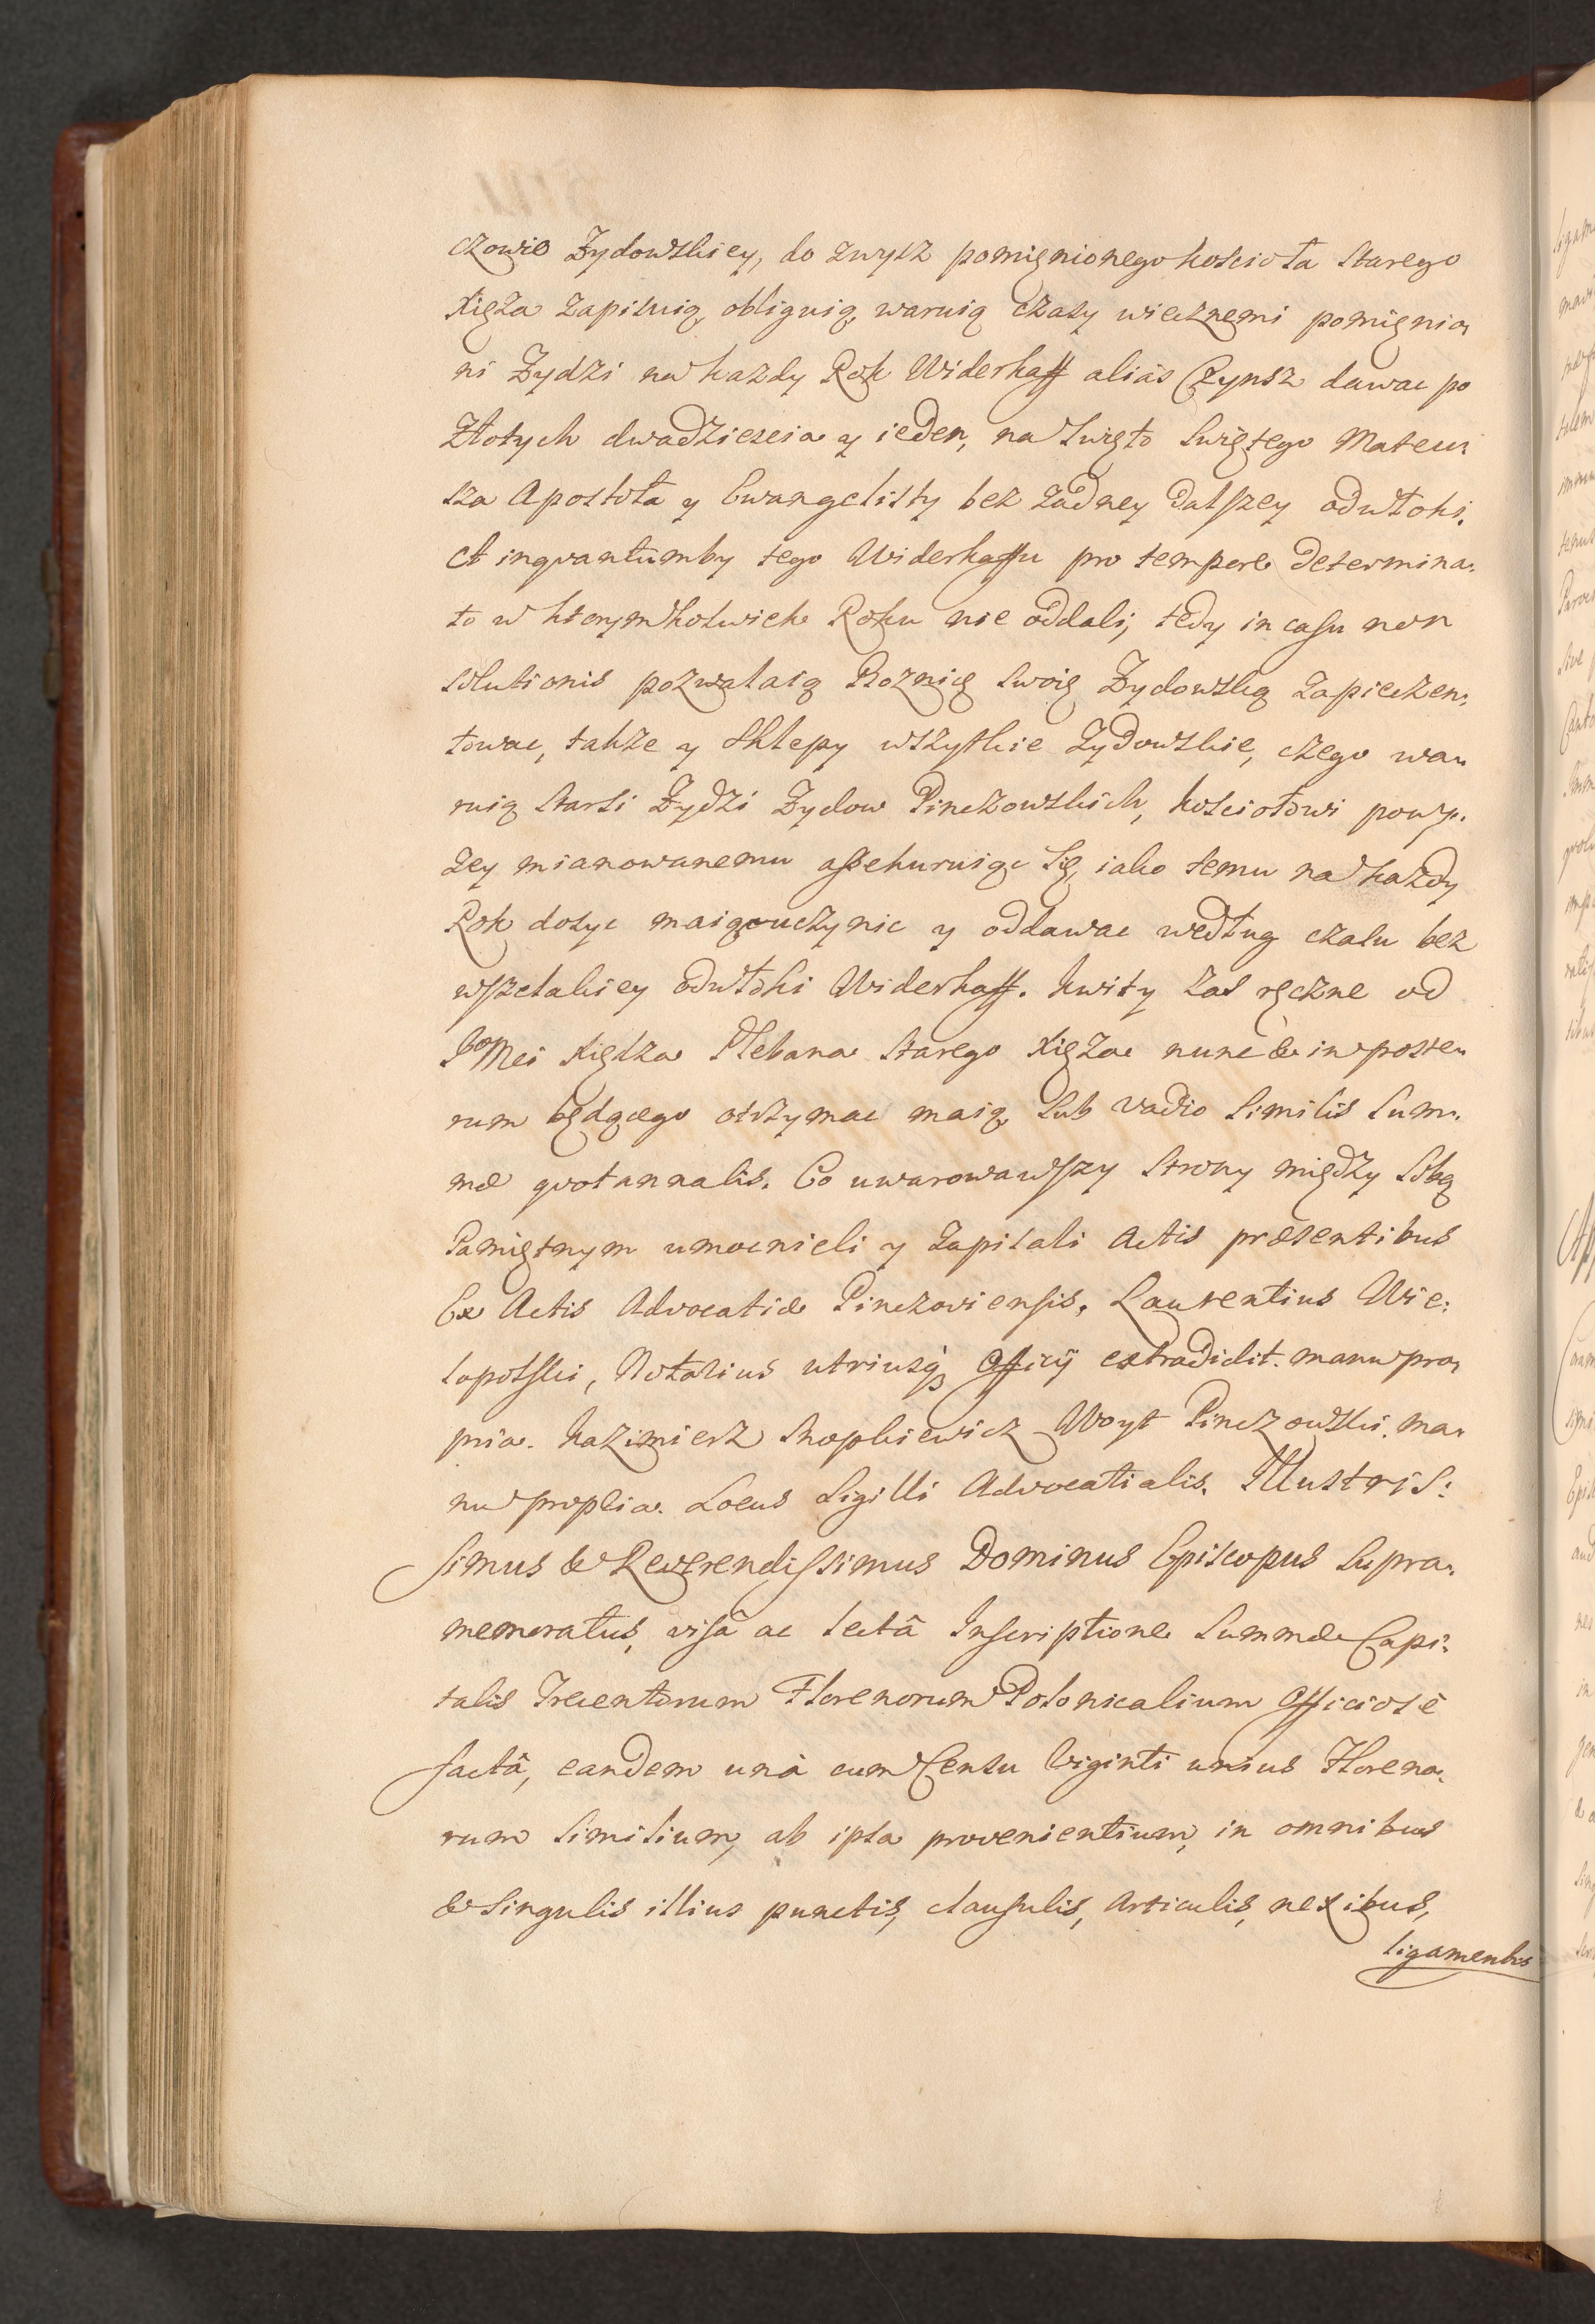 czowie Zydowskiey, do zwysz pomięnionego kościoła Starego
Xięża zapisuią, obliguią, waruią czasy wiecznemi pomięnio,
ni Żydzi na każdy Rok Widerkaff aliàs Czynsz dawac po
Złotych dwadziescia y ieden, na Swięto Swiętego Mateu,
sza Apostoła y Ewangelisty bez żadney dalszey odwłoki.
Et inqvantumby tego Widerkaffu pro tempore determina,
to w ktorymkolwiek Roku nie oddali, tedy in casu non
solutionis pozwalaią Boznicę swoię Zydowską zapieczen,
towac, także y Sklepy wszytkie Zydowskie, czego wa,
ruią Starsi Żydzi Zydow Pinczowskich, kościołowi powy,
zey mianowanemu assekuruiąc się, iako temu na każdy
Rok dosyc maią uczynic y oddawac według czasu bez
wszelakiey odwłoki Widerkaff. Kwity zas ręczne od
JegoMci Xiędza Plebana Starego Xięża nunc & in poste,
rum będącego otrzymac maią, sub vadio similis Sum,
mæ qvotannalis. Co uwarowawszy Strony między sobą
Pamiętnym umocnieli y zapisali Actis præsentibus
Ex Actis Advocatiæ Pinczoviensis. Laurentius Wie,
lopolski, Notarius utriusq Officij extradidit. manu pro,
pria. Kazimierz Skopkiewicz Woyt Pinczowski. ma,
nu propria. Locus Sigilli Advocatialis. Illustris:
simus & Reverendissimus Dominus Episcopus supra,
memoratus, visâ ac lectâ Inscriptione Summæ Capi,
talis Trecentorum Florenorum Polonicalium Officiosè
factâ, eandem unà cum Censu Viginti unius Floreno,
rum similium, ab ipsa provenientium, in omnibus
& singulis illius punctis, clausulis, Articulis, nexibus,
ligamentis